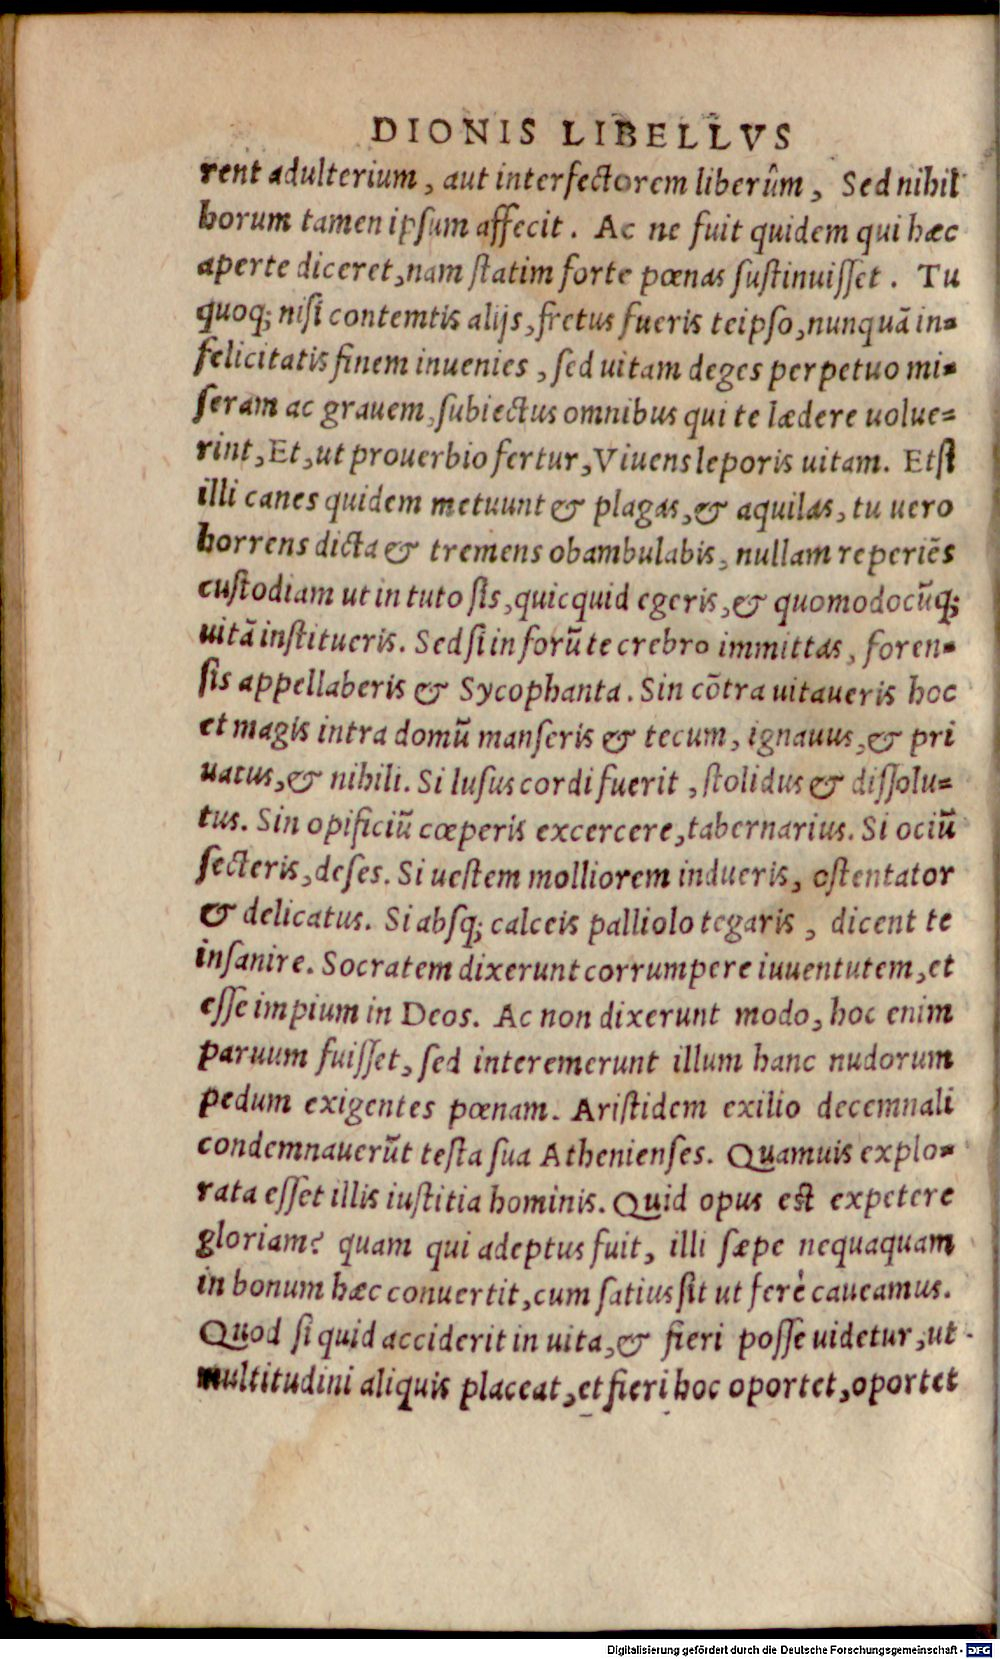 DIONIS LIBELLVS
rent adulterium, aut interfectorem liberûm, Sed nihil
horum tamen ipſum affecit. Ac ne fuit quidem qui hæc
aperte diceret, nam ſtatim forte pœnas ſuſtinuiſſet. Tu
quoq; niſi contemtis alijs, fretus fueris teipſo, nunquā in=
felicitatis finem inuenies, ſed uitam deges perpetuo mi=
ſeram ac grauem, ſubiectus omnibus qui te lædere uolue=
rint, Et, ut prouerbio fertur, Viuens leporis uitam. Etſi
illi canes quidem metuunt & plagas, & aquilas, tu uero
horrens dicta & tremens obambulabis, nullam reperiēs
cuſtodiam ut in tuto ſis, quicquid egeris, & quomodocūq;
uitā inſtitueris. Sed ſi in forū te crebro immittas, foren=
ſis appellaberis & Sycophanta. Sin cōtra uitaueris hoc
et magis intra domū manſeris & tecum, ignauus, & pri
uatus, & nihili. Si luſus cordi fuerit, ſtolidus & diſſolu=
tus. Sin opificiū cœperis excercere, tabernarius. Si ociū
ſecteris, deſes. Si ueſtem molliorem indueris, oſtentator
& delicatus. Si abſq; calceis palliolo tegaris, dicent te
inſanire. Socratem dixerunt corrumpere iuuentutem, et
eſſe impium in Deos. Ac non dixerunt modo, hoc enim
paruum fuiſſet, ſed interemerunt illum hanc nudorum
pedum exigentes pœnam. Ariſtidem exilio decemnali
condemnauerūt teſta ſua Athenienſes. Quamuis explo=
rata eſſet illis iuſtitia hominis. Quid opus eſt expetere
gloriam? quam qui adeptus fuit, illi ſæpe nequaquam
in bonum hæc conuertit, cum ſatius ſit ut ferè caueamus.
Quod ſi quid acciderit in uita, & fieri poſſe uidetur, ut
multitudini aliquis placeat, et fieri hoc oportet, oportet
Digitalisierung gefördert durch die Deutsche Forschungsgemeinschaft - DFG